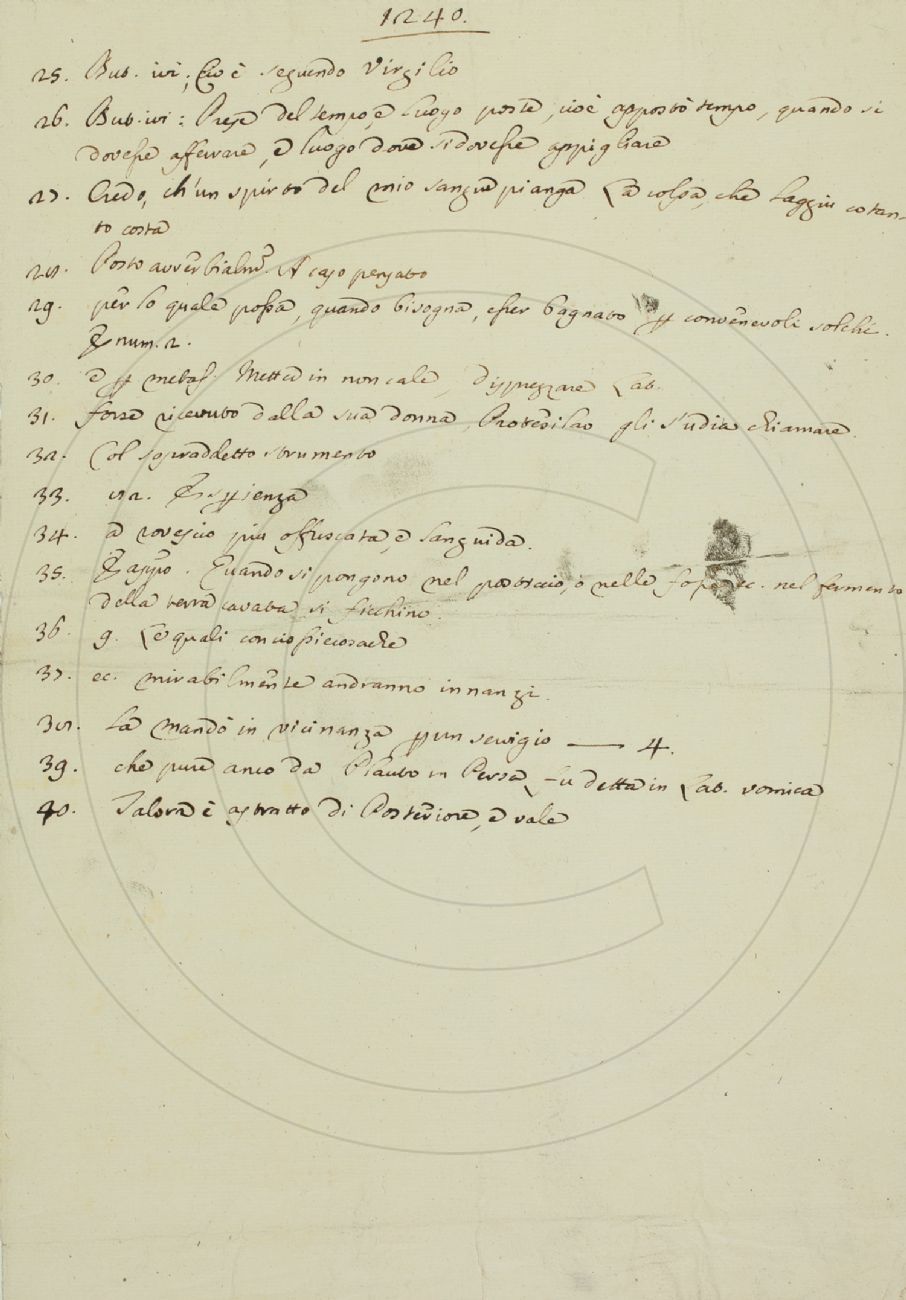 1240.
25. But. ivi; Cio è seguendo Virgilio
26. But. ivi: Prese del tempo, e luogo poste, cioè appostò tempo, quando si
dovesse afferrare, e luogo dove si dovesse appigliare
27. Credo, ch'un spirto del mio sangue pianga La colpa, che laggiu cotan-
to costa
28. Posto avverbialm. A caso pensato
29. per lo quale possa, quando bisogna, esser bagnato convenevoli solchi.
num. 2.
30. e metaf. Mettere in non cale, Disprezzare Lat.
31. forse ricevuto dalla sua donna, Protesilao gli studia chiamare
32. Col sopraddetto strumento
33. 82.
34. a rovescio piu offuscata, e languida.
35. Quando si pongono nel pastriccio, o nelle fosse ec. nel fermento
della terra cavata si ficchino.
36. g. Le quali conciossiecosache
37. ec. mirabilmente andranno innanzi.
38. La mandò in vicinanza un servigio — 4.
39. che pure anco da Plauto in Persa fu detta in Lat. vomica
40. Talora è astratto di Posteriore, e vale